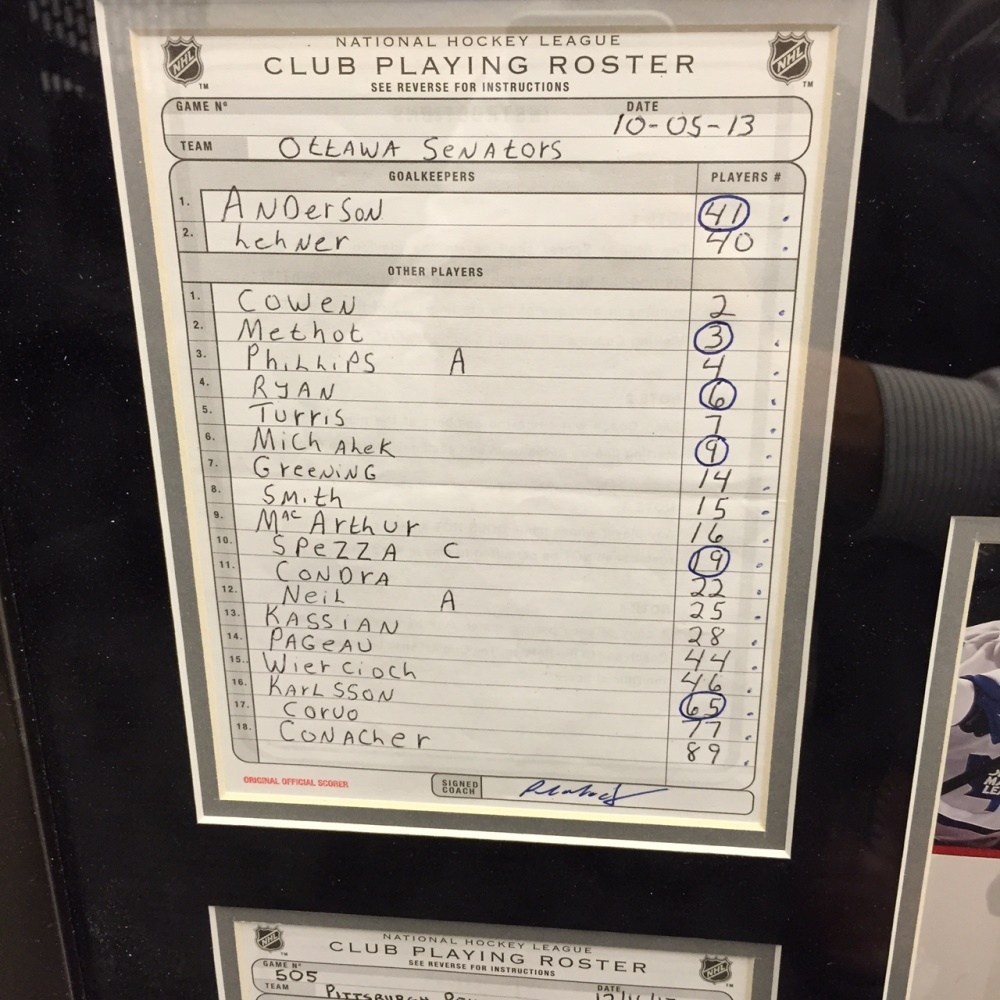 NATIONAL HOCKEY LEAGUE
CLUB PLAYING ROSTER
SEE REVERSE FOR INSTRUCTIONS
GAME Nº DATE 10-05-13
TEAM OttAWA SeNAtors
GOALKEEPERS PLAYERS #
1. ANDerSoN 41
2. LehNer 40
OTHER PLAYERS
1. CoWeN 2
2. Methot 3
3. PhiLLiPS A 4
4. RYAN 6
5. TurriS 7
6. MichALeK 9
7. GreeNiNG 14
8. SMith 15
9. MacArthur 16
10. SPeZZA C 19
11. CoNDrA 22
12. NeiL A 25
13. KASSiAN 28
14. PAGeAU 44
15. Wiercioch 46
16. KArLSSoN 65
17. Corvo 77
18. CoNAcher 89
ORIGINAL OFFICIAL SCORER SIGNED COACH
NATIONAL HOCKEY LEAGUE
CLUB PLAYING ROSTER
SEE REVERSE FOR INSTRUCTIONS
GAME Nº 505 DATE
TEAM PittSburgh